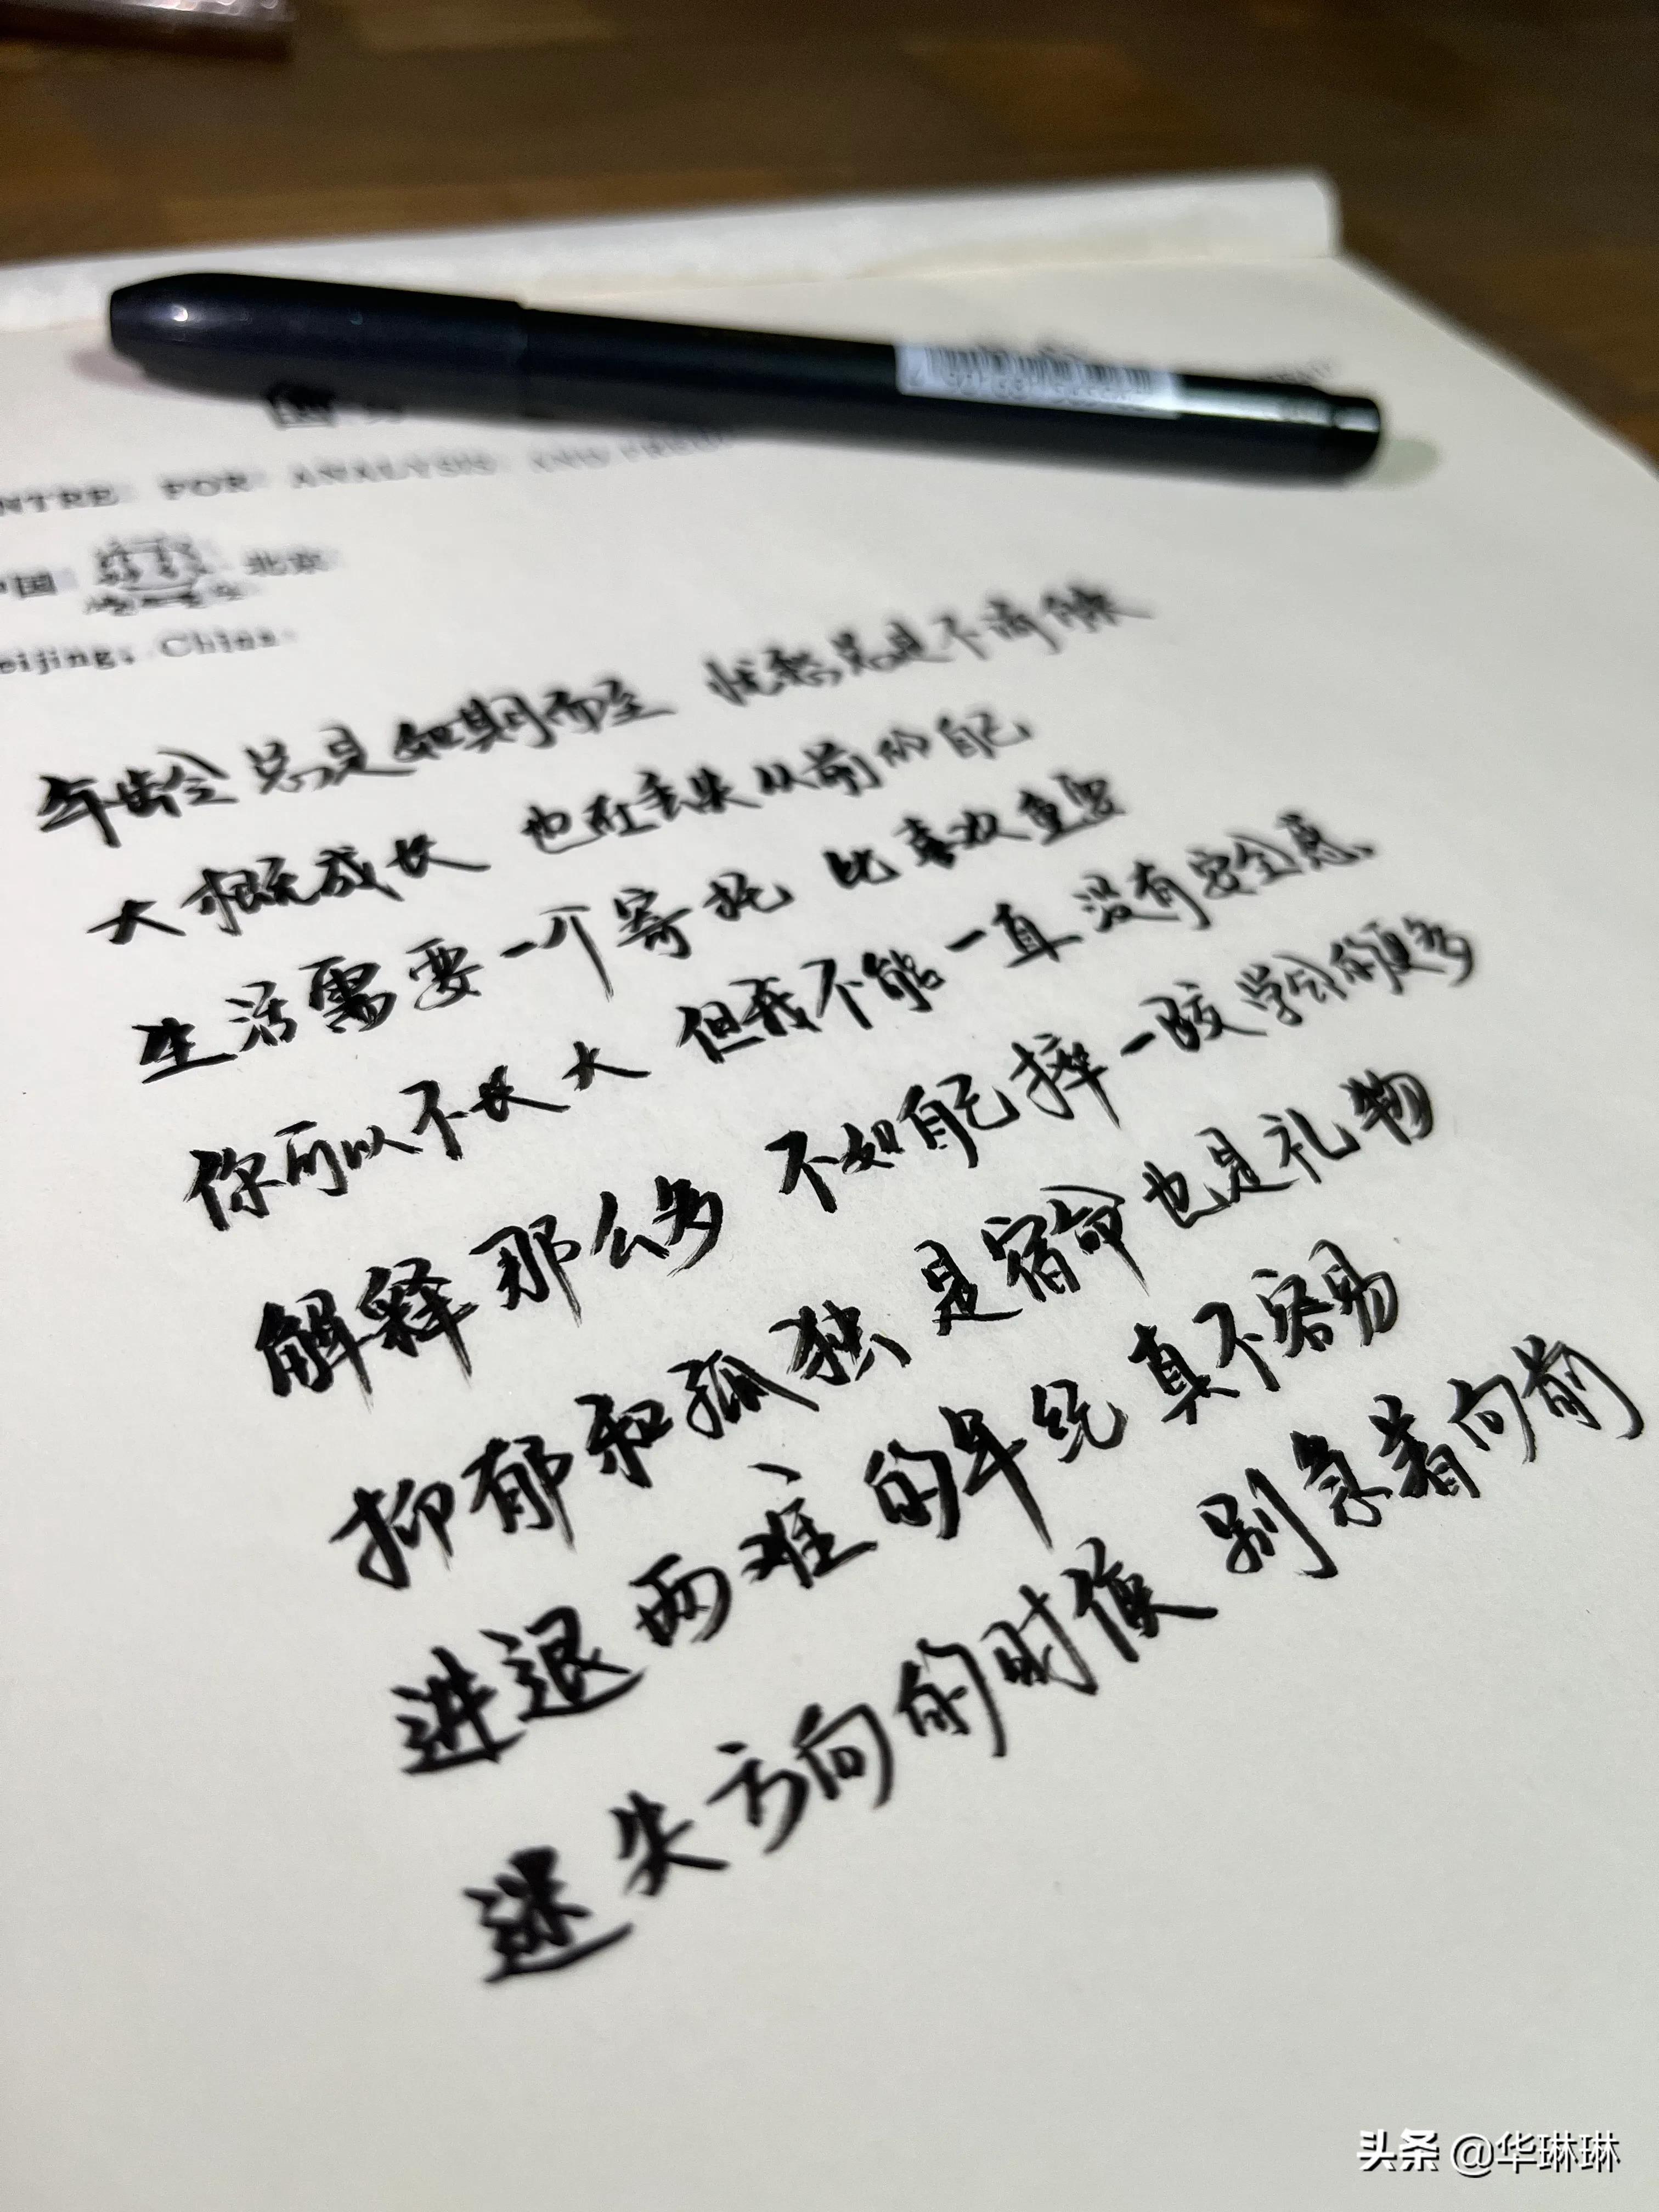 NTRE FOR ANALYSIS AND
中国 北京
eijing, China
年龄总是如期而至 忧愁总是不请自来
大概成长 也在丢失从前的自己
生活需要一个寄托 比喜欢重要
你可以不长大 但我不能一直没有安全感、
解释那么多 不如自己摔一跤学会的更多
抑郁和孤独 是宿命也是礼物
进退两难的年纪 真不容易
迷失方向的时候 别急着向前
头条 @华琳琳